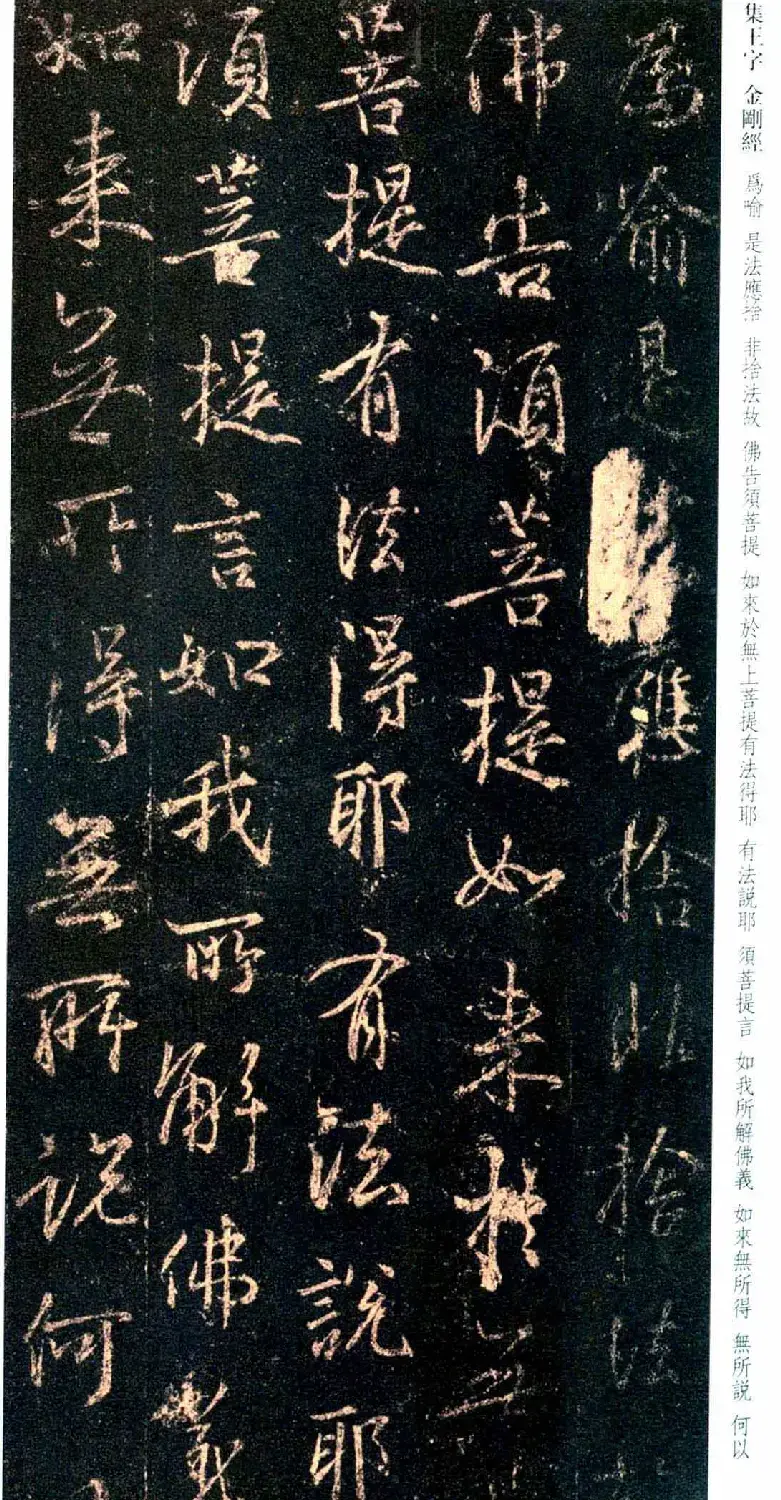 集王字 金剛經 爲喻 是法應捨 非捨法故 佛告須菩提 如來於無上菩提有法得耶 有法説耶 須菩提言 如我所解佛義 如來無所得 無所説 何以
爲喻是 應捨非捨法
佛告須菩提如來於無
菩提有法得耶有法說耶
須菩提言如我所解佛義
如來無所得無所說何